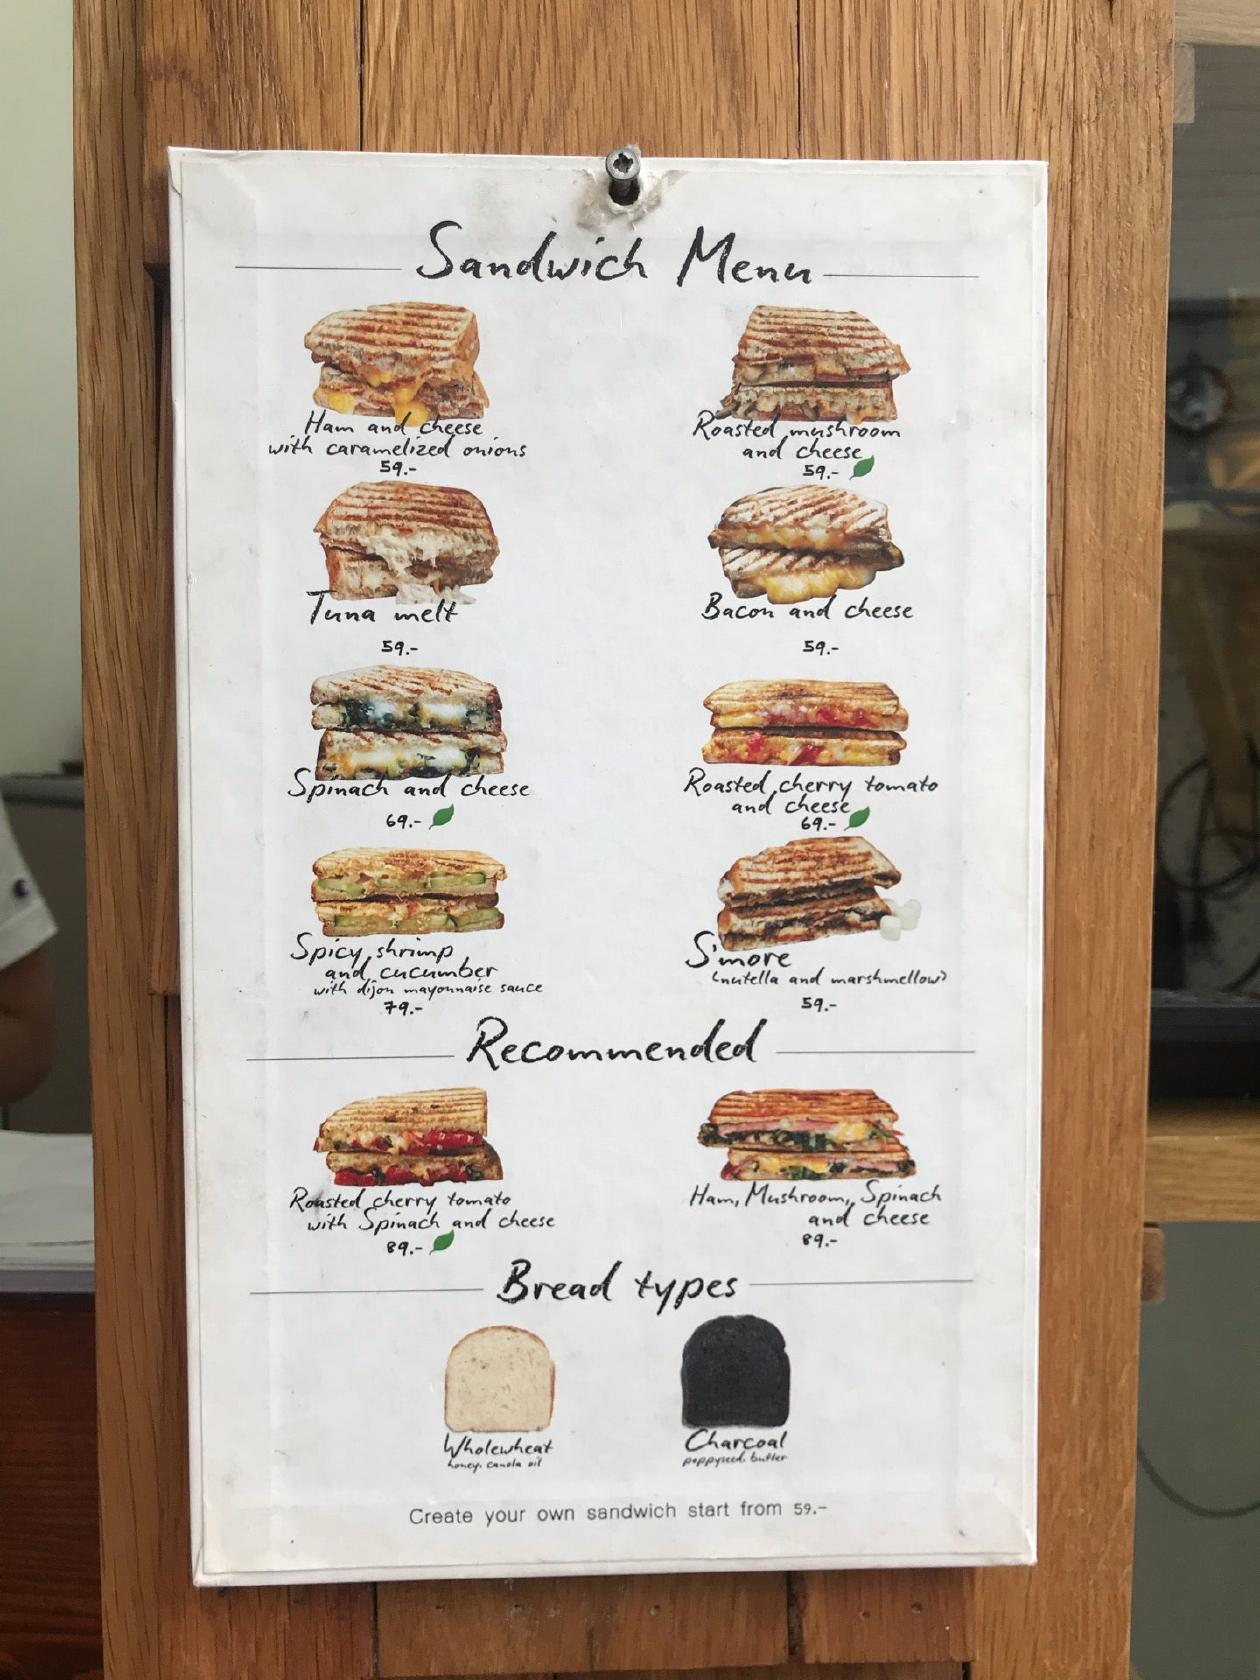 Sandwich Menu
Ham and cheese
with caramelized onions
59.-
Roasted mushroom
and cheese
59.-
Tuna melt
59.-
Bacon and cheese
59.-
Spinach and cheese
69.-
Roasted cherry tomato
and cheese
69.-
Spicy shrimp
and cucumber
with dijon mayonnaise sauce
79.-
S'more
(nutella and marshmellow)
59.-
Recommended
Roasted cherry tomato
with Spinach and cheese
89.-
Ham, Mushroom, Spinach
and cheese
89.-
Bread types
Wholewheat
honey, canola oil
Charcoal
poppyseed, butter
Create your own sandwich start from 59.-